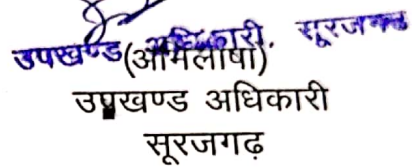 उपखण्ड अधिकारी, सूरजगढ
(अभिलाषा)
उपखण्ड अधिकारी
सूरजगढ़